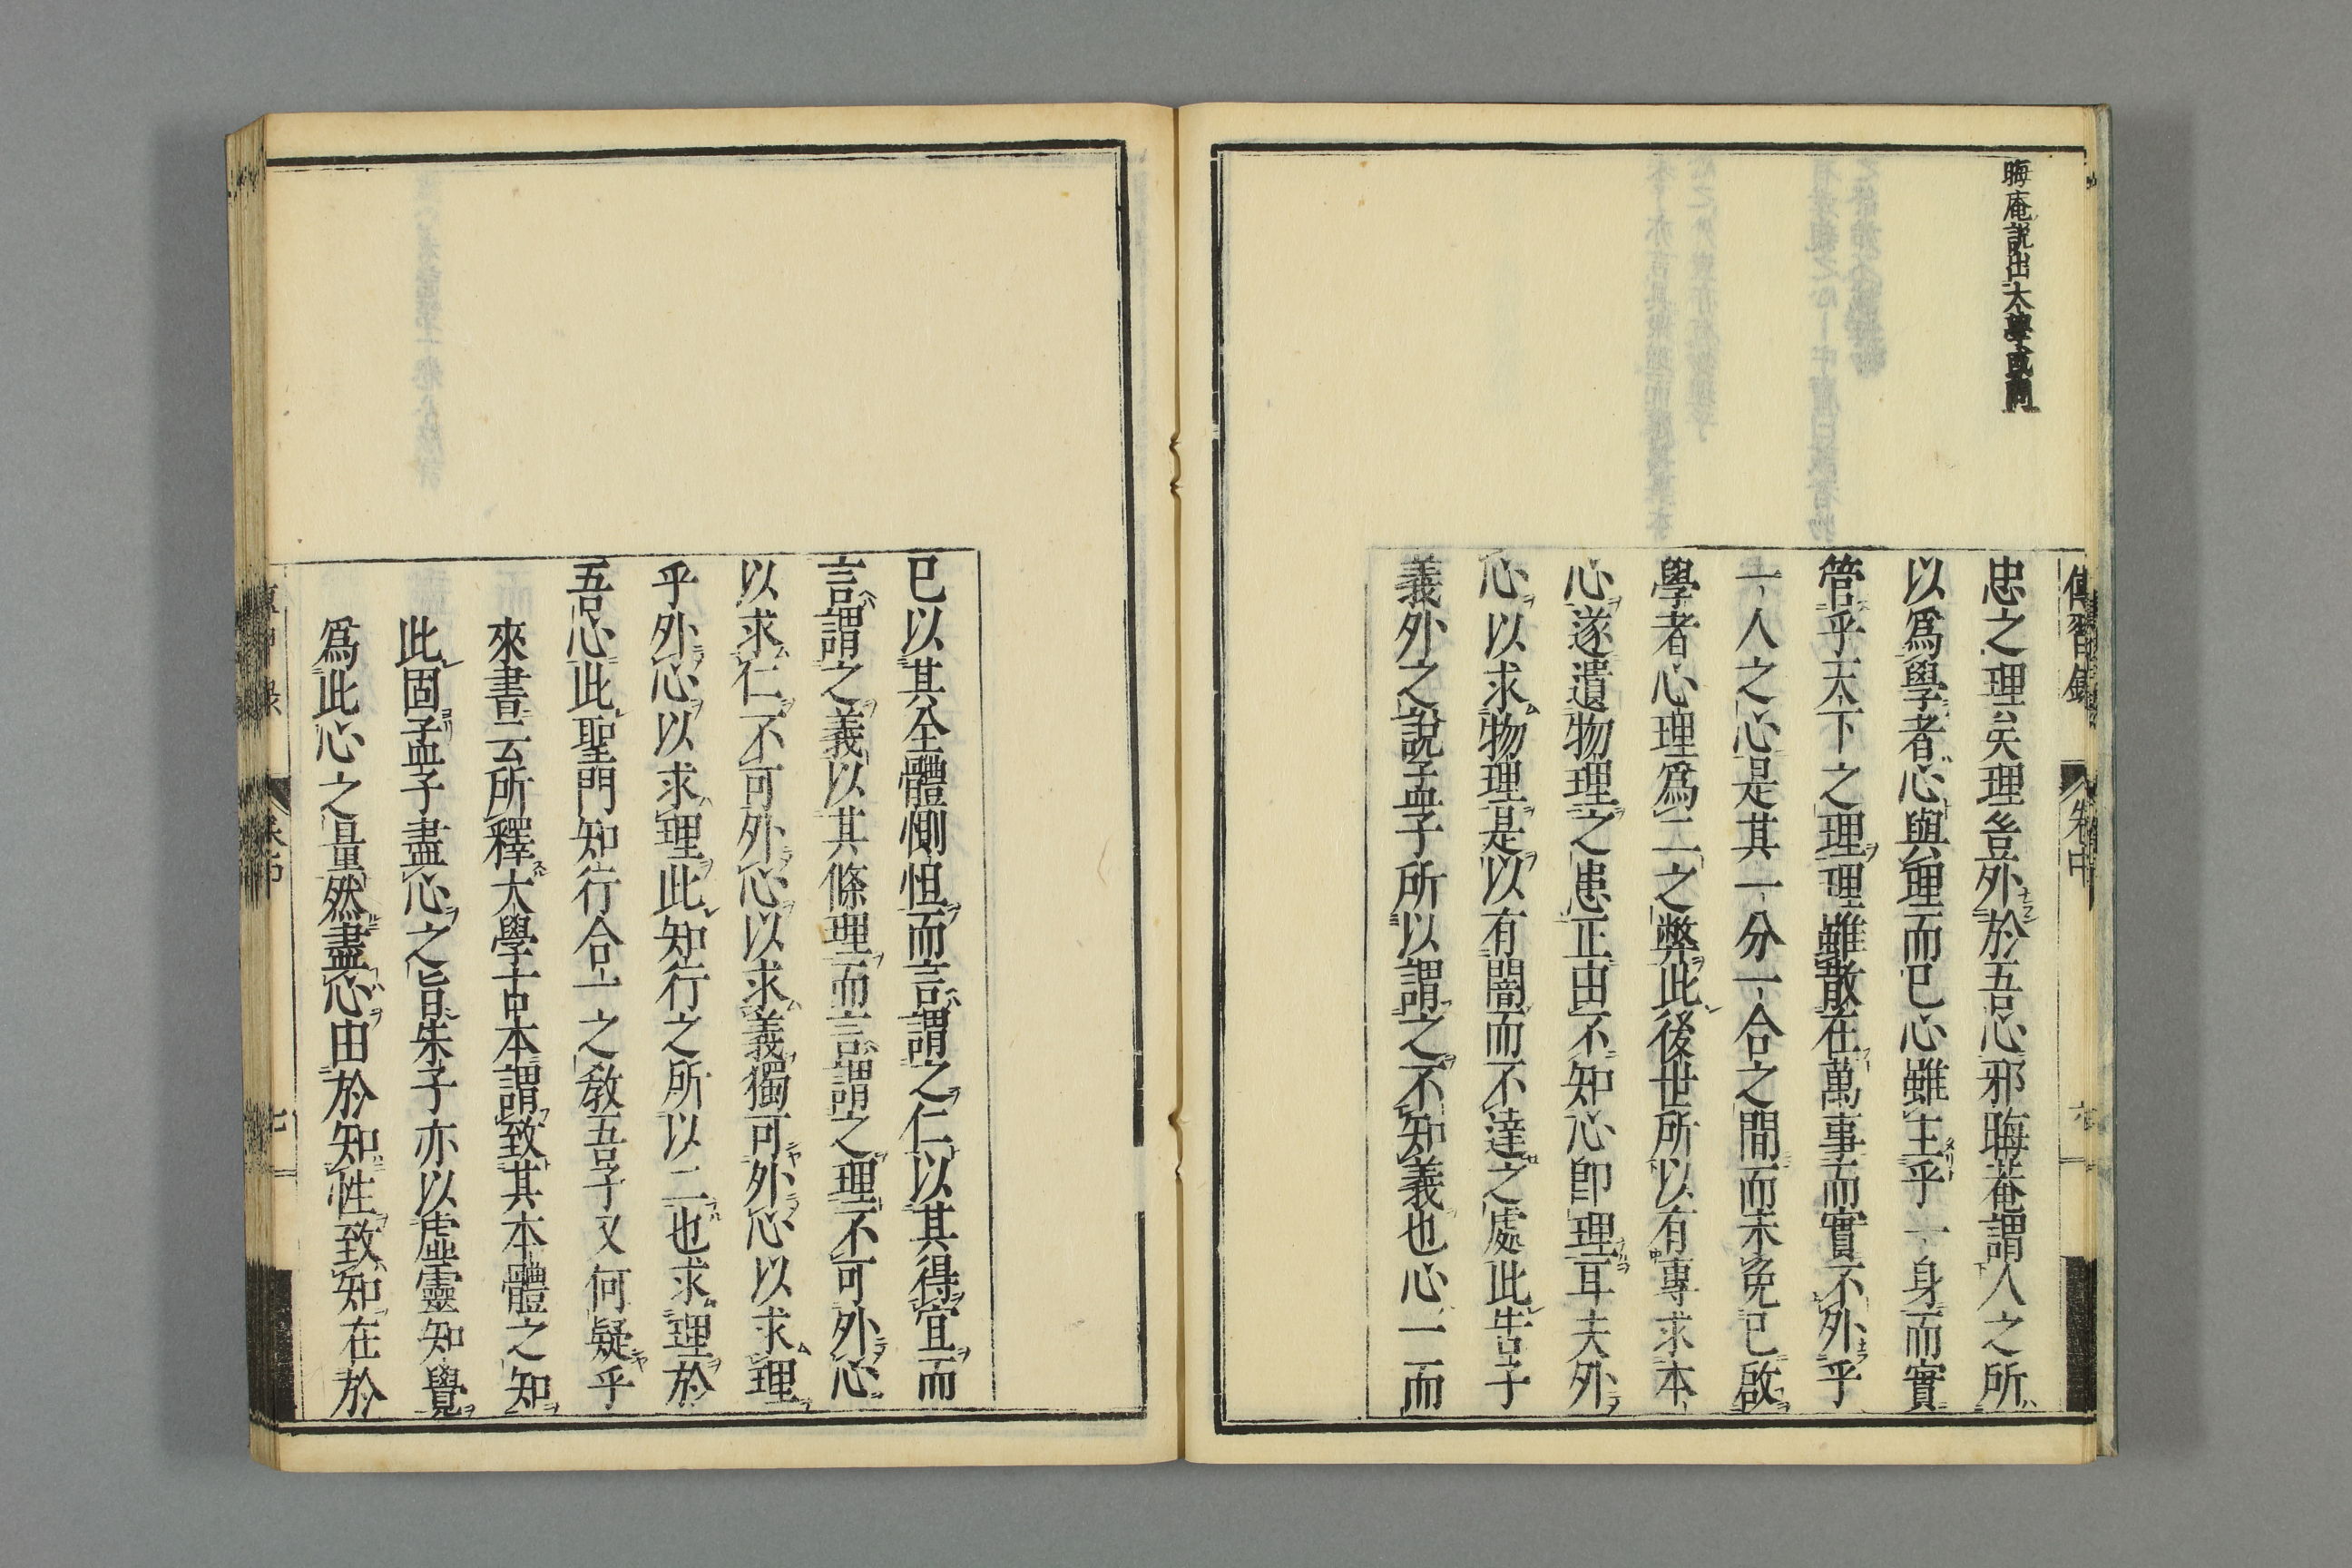 傳習錄
卷中
六
晦庵說出大學或問
忠之理矣理豈外於吾心邪晦菴謂人之所
以爲學者心與理而已心雖主乎一身而實
管乎天下之理理雖散在萬事而實不外乎
一人之心是其一分一合之間而未免已啟
學者心理爲二之弊此後世所以有專求本
心遂遺物理之患正由不知心卽理耳夫外
心以求物理是以有闇而不達之處此告子
義外之說孟子所以謂之不知義也心一而
已以其全體惻怛而言謂之仁以其得宜而
言謂之義以其條理而言謂之理不可外心
以求仁不可外心以求義獨可外心以求理
乎外心以求理此知行之所以二也求理於
吾心此聖門知行合一之敎吾子又何疑乎
來書云所釋大學古本謂致其本體之知
此固孟子盡心之旨朱子亦以虛靈知覺
爲此心之量然盡心由於知性致知在於